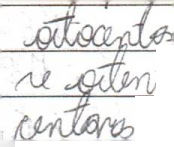 oitocentos
e oiten
centavos